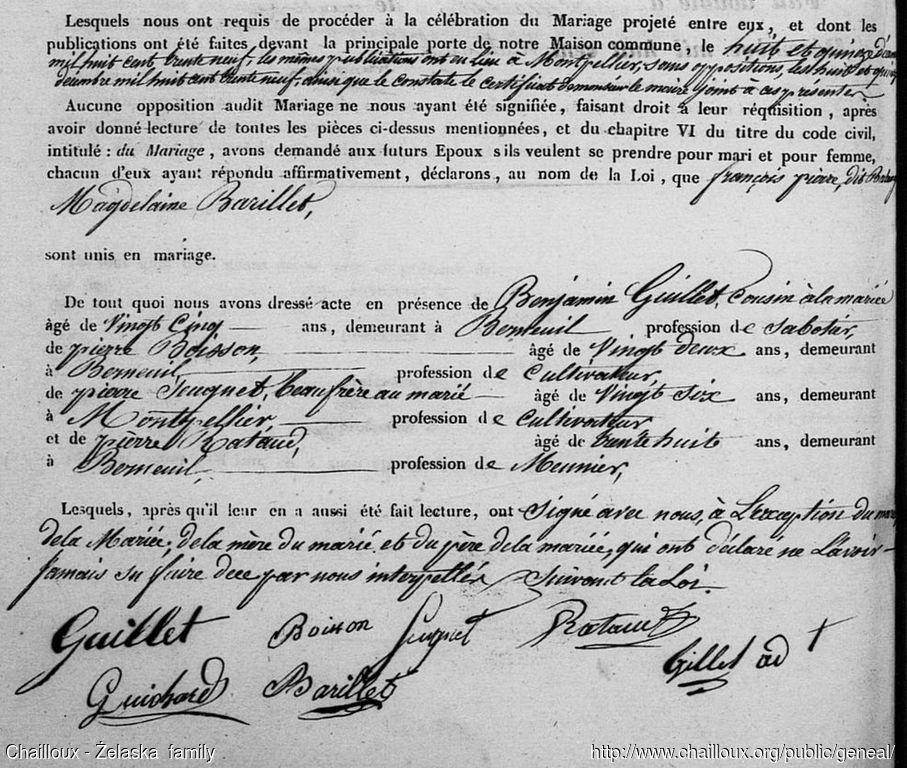 Lesquels nous ont requis de procéder à la célébration du Mariage projeté entre eux, et dont les
publications ont été faites devant la principale porte de notre Maison commune, le huit et quinze
mil huit cent trente neuf, les mêmes publications ont eu lieu à Montpellier, sans oppositions, les huit et
décembre mil huit cent trente neuf, ainsi que le constate le certificat de monsieur le maire joint a ces presentes
Aucune opposition audit Mariage ne nous ayant été signifiée, faisant droit à leur réquisition, après
avoir donné lecture de toutes les pièces ci-dessus mentionnées, et du chapitre VI du titre du code civil,
intitulé : du Mariage, avons demandé aux futurs Epoux s'ils veulent se prendre pour mari et pour femme,
chacun d'eux ayant répondu affirmativement, déclarons, au nom de la Loi, que françois pierre, dit
Magdelaine Barillet,
sont unis en mariage.
De tout quoi nous avons dressé acte en présence de Benjamin Guillet, Cousin à la mariée
âgé de Vingt Cinq ans, demeurant à Berneuil profession de Sabotier,
de pierre Boisson, âgé de Vingt deux ans, demeurant
à Berneuil profession de Cultivateur,
de pierre Jouquet, beau frère au marié âgé de Vingt Six ans, demeurant
à Montpellier, profession de Cultivateur
et de pierre Rataud, âgé de trente huit ans, demeurant
à Berneuil, profession de Meunier,
Lesquels, après qu'il leur en a aussi été fait lecture, ont Signé avec nous, à L'exception du
de la Mariée, de la mère du marié, et du père de la mariée, qui ont déclaré ne L'avoir
jamais su faire de ce par nous interpellés Suivant la Loi.
Guillet Boisson Rataud
Gillet ad
Guichard Barillet
Chailloux - Želaska family http://www.chailloux.org/public/geneal/